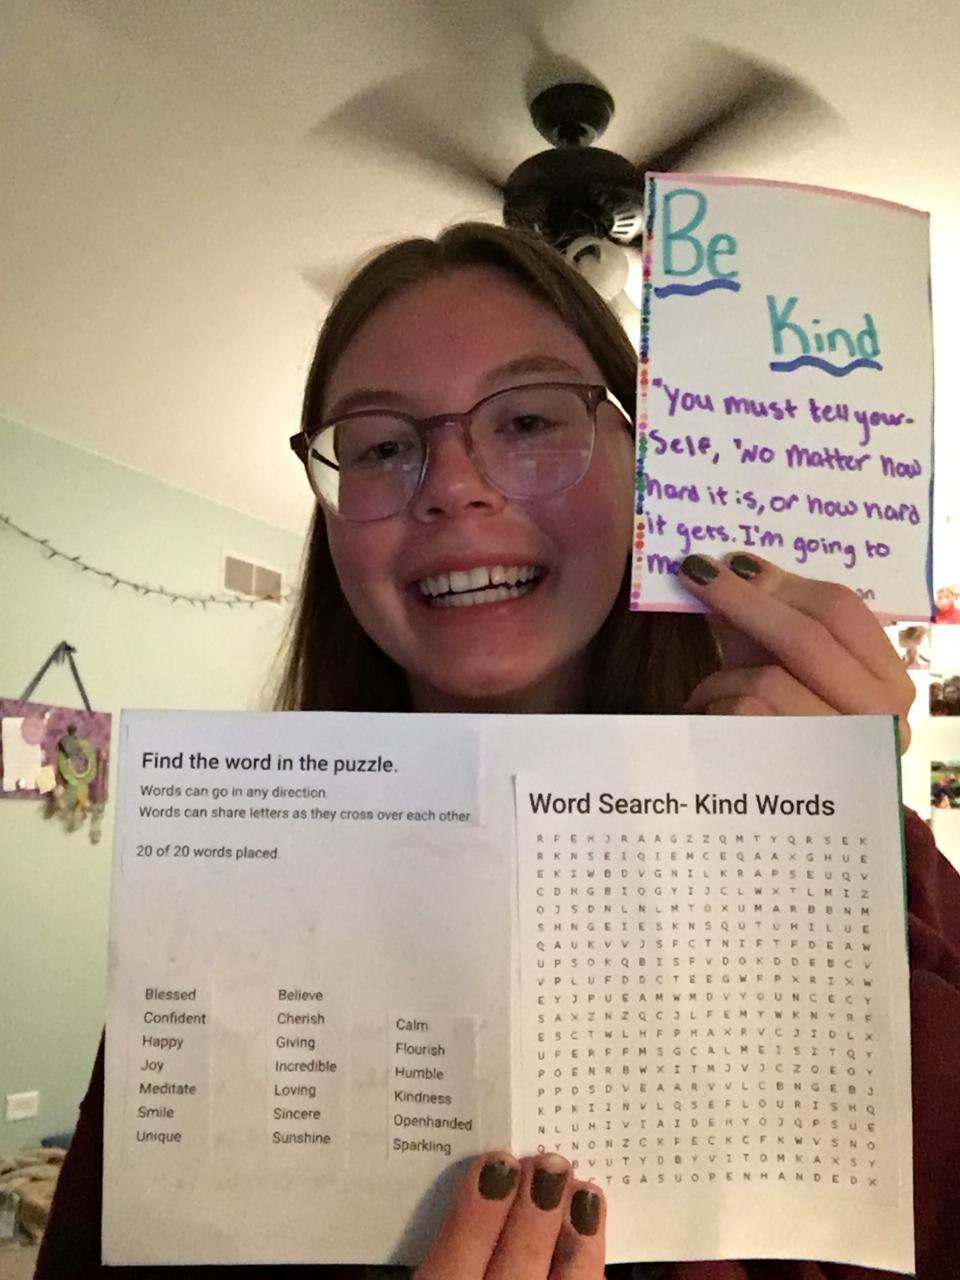 Be
Kind
"You must tell your-
self, 'No matter how
hard it is, or how hard
it gets. I'm going to
Find the word in the puzzle.
Words can go in any direction.
Words can share letters as they cross over each other
20 of 20 words placed.
Blessed
Confident
Happy
Joy
Meditate
Smile
Unique
Believe
Cherish
Giving
Incredible
Loving
Sincere
Sunshine
Calm
Flourish
Humble
Kindness
Openhanded
Sparkling
Word Search- Kind Words
R F E H J R A A G Z Z Q M T Y Q R S E K
R K N S E I Q I E M C E Q A A X G H U E
E K I W B D V G N I L K R A P S E U Q V
C D H G B I O G Y I J C L W X T L M I Z
O J S D N L N L M T O X U M A R B B N M
S H N G E I E S K N S Q U T U H I L U E
Q A U K V V J S F C T N I F T F D E A W
U P S O K Q B I S F V D O K D D E B C V
V P L U F D D C T E E G W F P X R I X W
E Y J P U E A M W M D V Y O U N C E C Y
S A X Z N Z Q C J L F E M Y W K N Y R F
E S C T W L H F P H A X R V C J I D L X
U F E R F F M S G C A L M E I S I T Q Y
P O E N R B W X I T M J V J C Z O E O Y
P P D S D V E A A R V V L C B N G E B J
K P K I I N V L Q S E F L O U R I S H Q
N L U M I V I A I D E H Y O J Q P S U E
Q Y N O N Z C K F E C K C F K W V S N O
B V U T Y D B Y V I T O M K A X S Y
T G A S U O P E N H A N D E D X